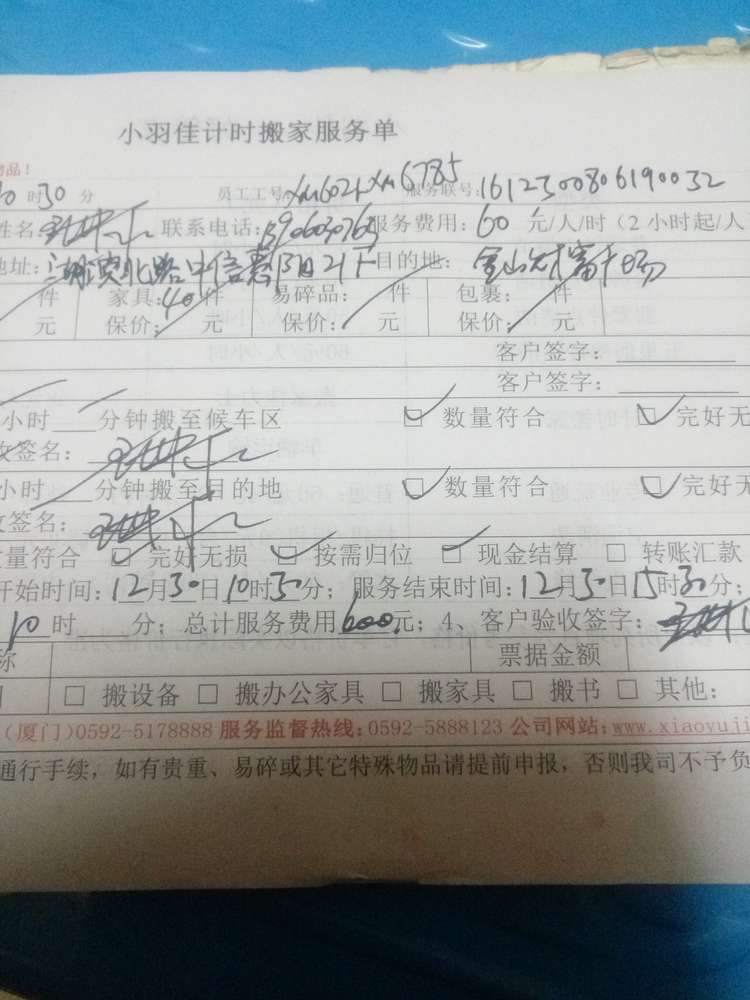 小羽佳计时搬家服务单
物品！
0 时30 分 员工工号: 服务联号:1612300806190032
姓名: 联系电话: 服务费用: 60 元/人/时（2 小时起/人
地址: 湖滨北路中信惠 目的地: 金山财富广场
件 家具:40件 易碎品: 件 包裹: 件
元 保价: 元 保价: 元 保价: 元
客户签字:
客户签字:
小时 分钟搬至候车区 ☑ 数量符合 ☑ 完好无
收签名:
小时 分钟搬至目的地 ☑ 数量符合 ☑ 完好无
收签名:
数量符合 ☑ 完好无损 ☑ 按需归位 ☑ 现金结算 □ 转账汇款
开始时间: 12月30日10时30分; 服务结束时间: 12月30日15时30分;
10 时 分; 总计服务费用600元; 4、客户验收签字:
称 票据金额
□ 搬设备 □ 搬办公家具 □ 搬家具 □ 搬书 □ 其他:
(厦门)0592-5178888 服务监督热线:0592-5888123 公司网站:www.xiaoyuji
通行手续，如有贵重、易碎或其它特殊物品请提前申报，否则我司不予负